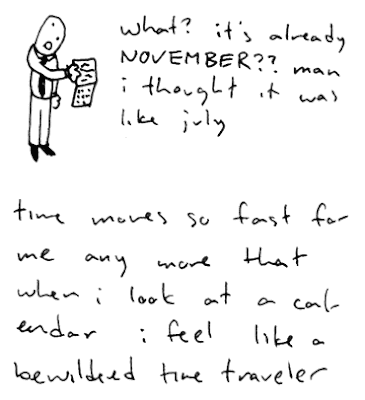 what? it's already
NOVEMBER?? man
i thought it was
like july
time moves so fast for
me any more that
when i look at a cal-
endar i feel like a
bewildered time traveler